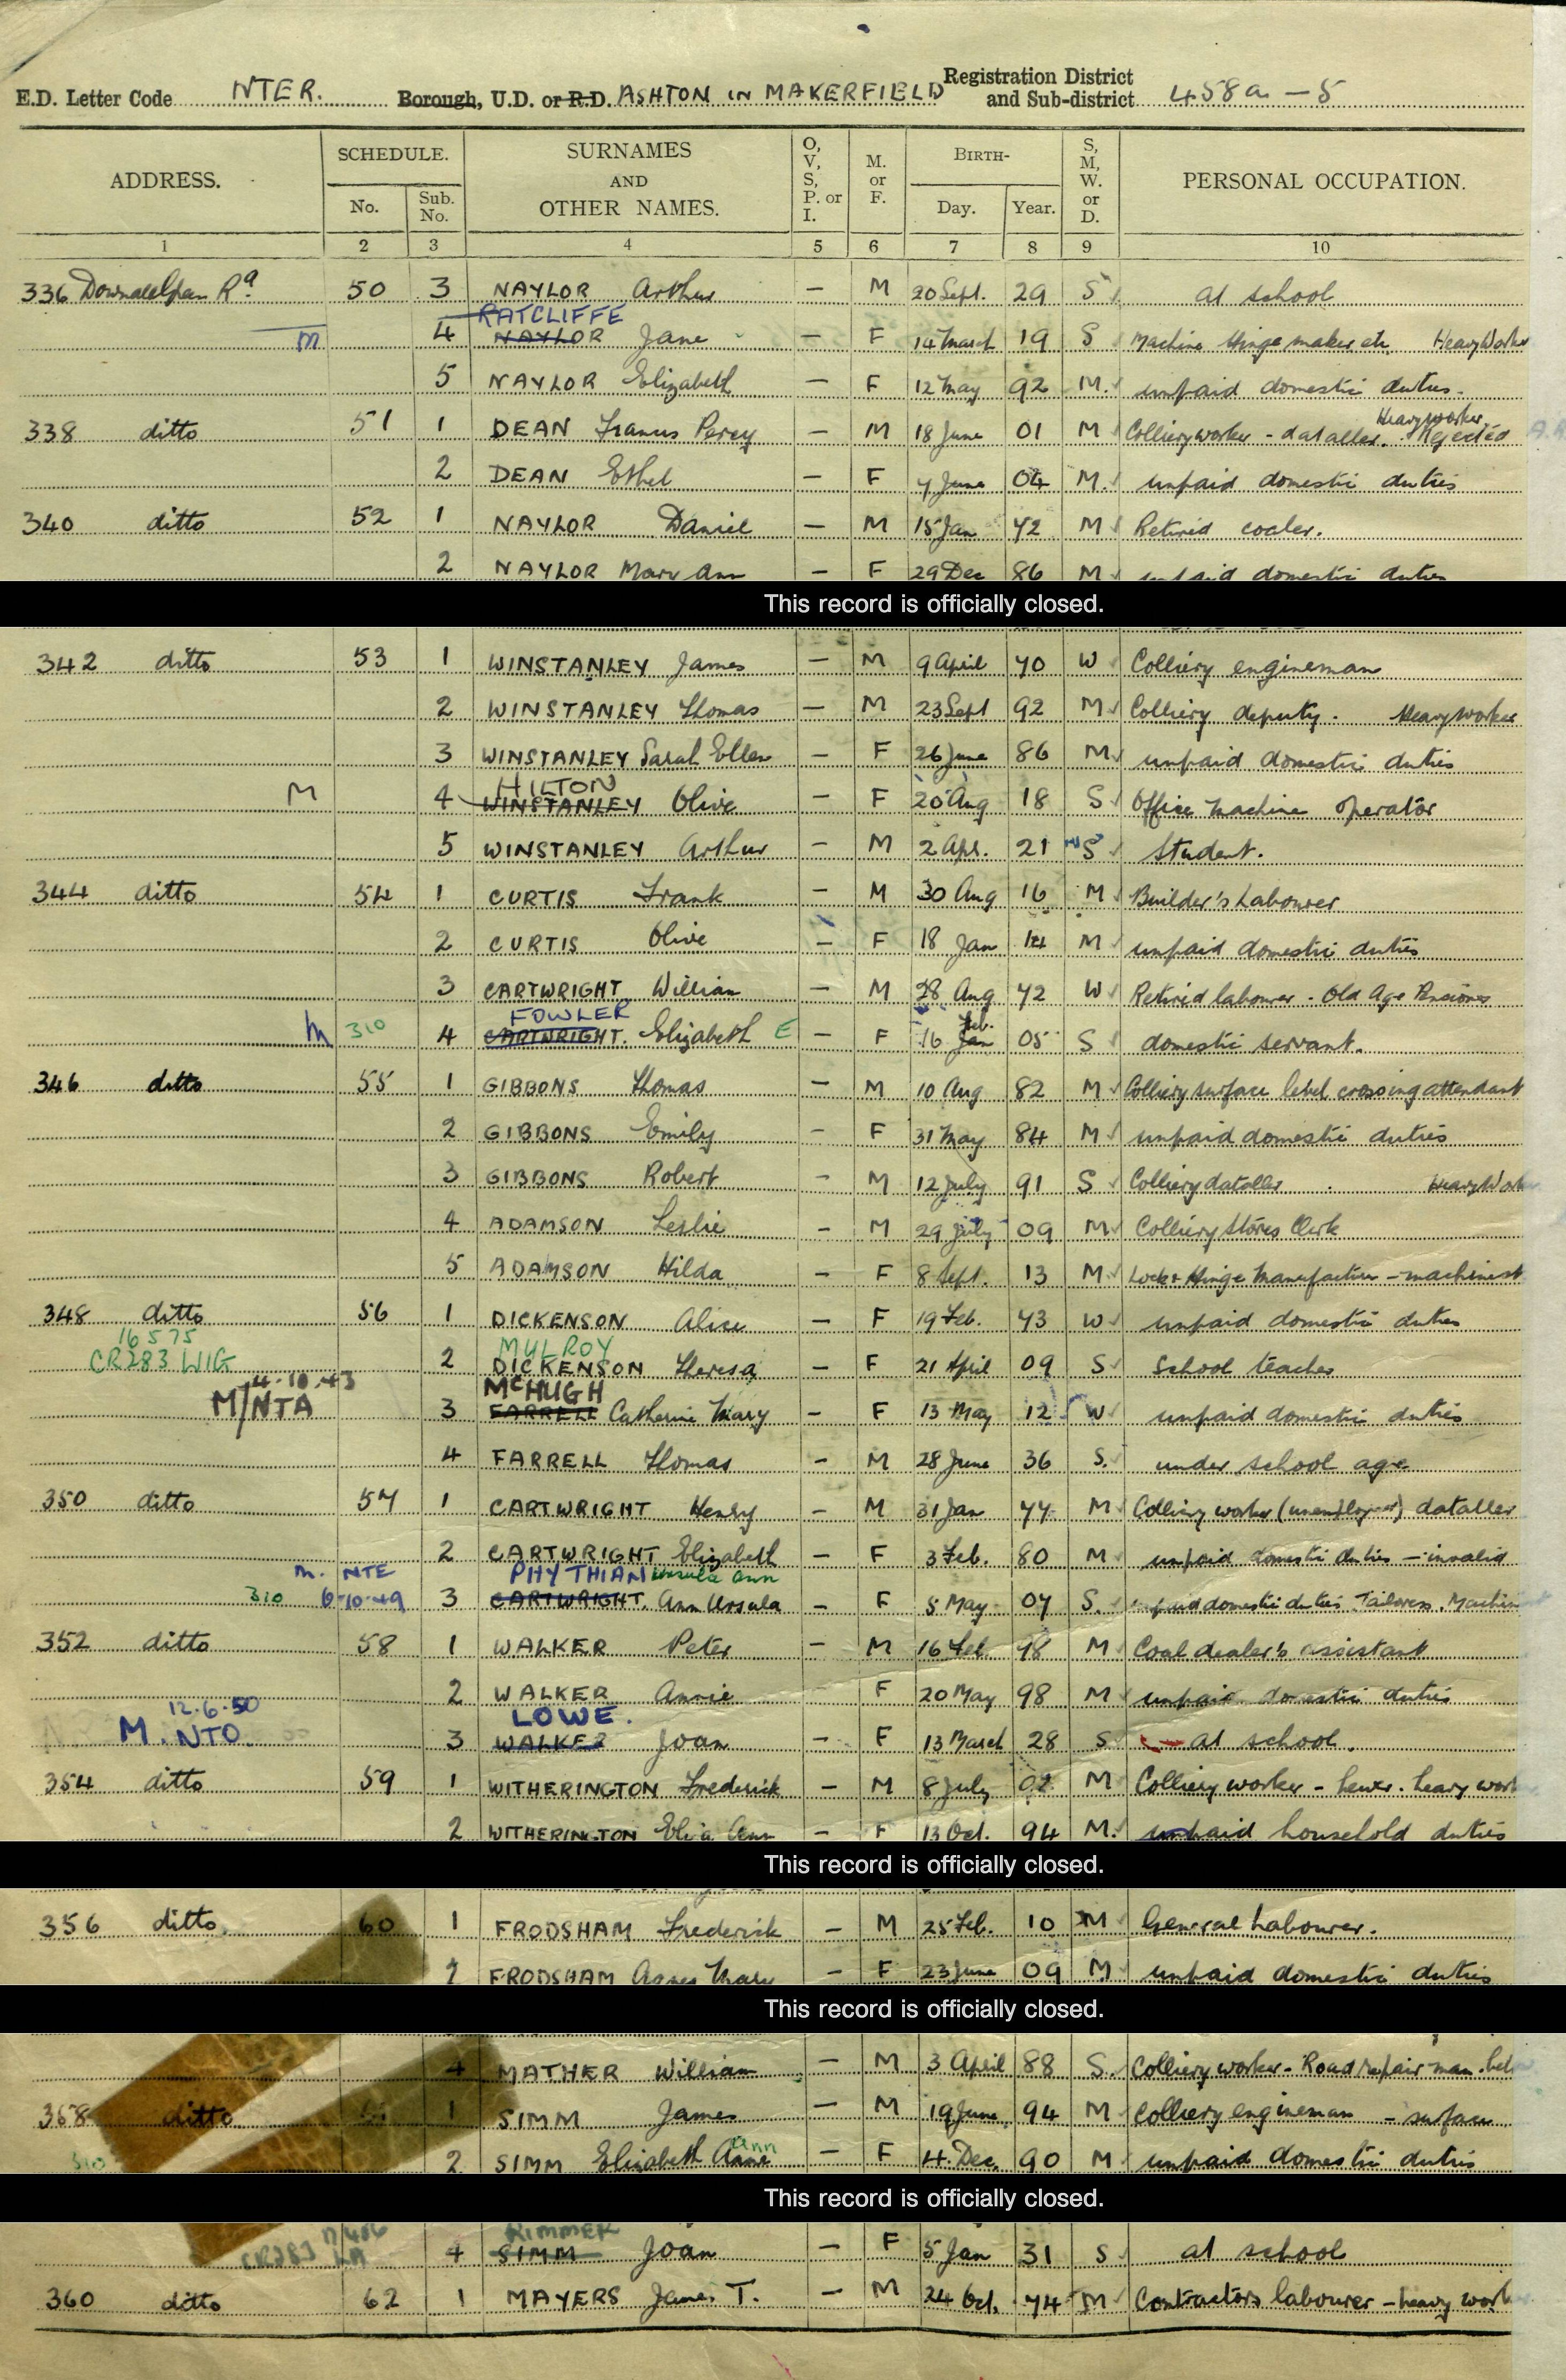 E.D. Letter Code NTER. Borough, U.D. or R.D. ASHTON IN MAKERFIELD Registration District and Sub-district 458a - 5
ADDRESS. SCHEDULE. No. Sub. No. SURNAMES AND OTHER NAMES. O, V, S, P. or I. M. or F. BIRTH- Day. Year. S, M, W. or D. PERSONAL OCCUPATION.
1 2 3 4 5 6 7 8 9 10
336 Downall Green Rd 50 3 NAYLOR Arthur – M 20 Sept. 29 S at school
RATCLIFFE
M 4 NAYLOR Jane – F 14 March 19 S Machine Hinge maker etc. Heavy Worker
5 NAYLOR Elizabeth – F 12 May 92 M. unpaid domestic duties.
Heavy worker
338 ditto 51 1 DEAN Francis Percy – M 18 June 01 M Colliery worker - dataller. Rejected
2 DEAN Ethel – F 7 June 04 M. unpaid domestic duties
340 ditto 52 1 NAYLOR Daniel – M 15 Jan 72 M Retired
2 NAYLOR Mary Ann – F 29 Dec 86 M unpaid domestic duties
This record is officially closed.
342 ditto 53 1 WINSTANLEY James – M 9 April 70 W Colliery engineman
2 WINSTANLEY Thomas – M 23 Sept 92 M Colliery deputy. Heavy Worker
3 WINSTANLEY Sarah Ellen – F 26 June 86 M unpaid domestic duties
HILTON
M 4 WINSTANLEY Olive – F 20 Aug 18 S Office Machine operator
5 WINSTANLEY Arthur – M 2 Apr. 21 S Student.
344 ditto 54 1 CURTIS Frank – M 30 Aug 16 M Builder's Labourer
2 CURTIS Olive – F 18 Jan 14 M unpaid domestic duties
3 CARTWRIGHT William – M 28 Aug 72 W Retired labourer - Old Age Pensioner
FOWLER Feb.
M 310 4 CARTWRIGHT. Elizabeth E – F 16 Jan 05 S domestic servant.
346 ditto 55 1 GIBBONS Thomas – M 10 Aug 82 M Colliery surface level crossing attendant
2 GIBBONS Emily – F 31 May 84 M unpaid domestic duties
3 GIBBONS Robert – M 12 July 91 S Colliery dataller Heavy Work
4 ADAMSON Leslie – M 29 July 09 M Colliery Stores Clerk
5 ADAMSON Hilda – F 8 Sept. 13 M Lock & Hinge Manufacture - machinist
348 ditto 56 1 DICKENSON Alice – F 19 Feb. 73 W unpaid domestic duties
16575 MULROY
CR283 WIG 2 DICKENSON Theresa – F 21 April 09 S School teacher
4.10.43 McHUGH
M/NTA 3 FARRELL Catherine Mary – F 13 May 12 W unpaid domestic duties
4 FARRELL Thomas – M 28 June 36 S. under school age
350 ditto 57 1 CARTWRIGHT Henry – M 31 Jan 77 M Colliery worker (unemployed) dataller
2 CARTWRIGHT Elizabeth – F 3 Feb. 80 M unpaid domestic duties - invalid
M. NTE PHYTHIAN Ursula Ann
310 6-10-49 3 CARTWRIGHT. Ann Ursula – F 5 May 07 S. unpaid domestic duties Tailoress. Machin
352 ditto 58 1 WALKER Peter – M 16 Feb. 98 M Coal dealer's assistant
2 WALKER Annie F 20 May 98 M unpaid domestic duties
12.6.50 LOWE.
M. NTO 3 WALKER Joan – F 13 March 28 S at school.
354 ditto 59 1 WITHERINGTON Frederick – M 8 July 02 M Colliery worker - hewer. heavy work
2 WITHERINGTON Eliza Ann – F 13 Oct. 94 M. unpaid household duties
This record is officially closed.
356 ditto. 60 1 FRODSHAM Frederick – M 25 Feb. 10 M General Labourer.
2 FRODSHAM Agnes Mary – F 23 June 09 M unpaid domestic duties
This record is officially closed.
4 MATHER William – M 3 April 88 S. Colliery worker - Road repair man. bel
358 ditto 61 1 SIMM James – M 19 June 94 M Colliery engineman - surface
Ann
310 2 SIMM Elizabeth Anne – F 4. Dec. 90 M unpaid domestic duties
This record is officially closed.
RIMMER
CR283 LA 4 SIMM Joan – F 5 Jan 31 S at school
360 ditto 62 1 MAYERS James T. – M 24 Oct. 74 M Contractors labourer - heavy work